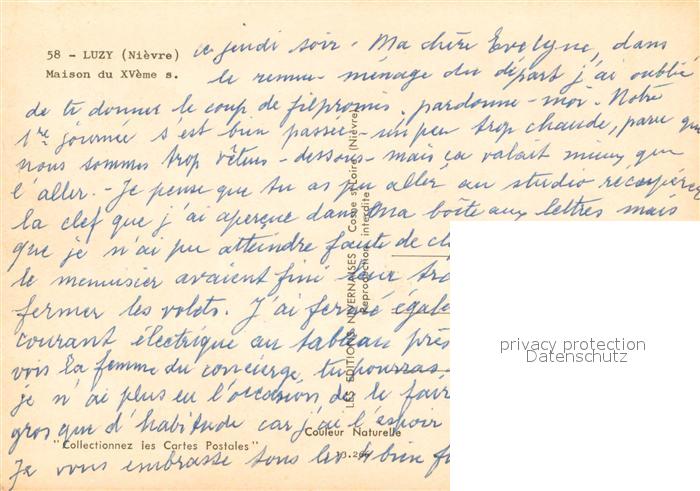 58 - LUZY (Nièvre)
Maison du XVème s.
ce jeudi soir - Ma chère Evelyne, dans
le remue-ménage du départ j'ai oublié
de te donner le coup de fil promis. pardonne-moi. Notre
1re journée s'est bien passée - un peu trop chaude, parce que
nous sommes trop vêtus - dessous - mais ça valait mieux que
l'aller. - Je pense que tu as pu aller au studio recupérer
la clef que j'ai aperçue dans ma boîte aux lettres mais
que je n'ai pu atteindre faute de
le menuisier avaient fini leur
fermer les volets. J'ai fermé
courant électrique au tableau près
vois la femme du concierge, tu pourras
je n'ai plus eu l'occasion de le
gros que d'habitude car j'ai l'espoir
Je vous embrasse tous les 4 bien
LES EDITIONS NIVERNAISES Cosne sur Loire (Nièvre)
Reproduction interdite
Couleur Naturelle
"Collectionnez les Cartes Postales"
privacy protection
Datenschutz